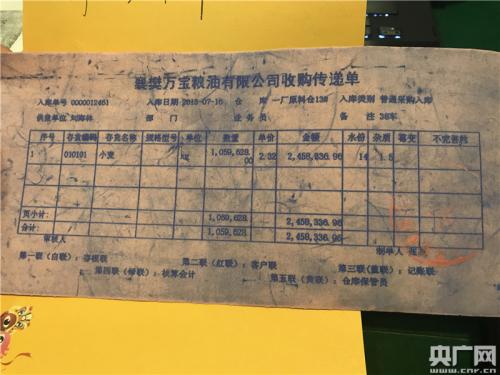 襄樊万宝粮油有限公司收购传递单
入库单号 0000012461 入库日期 2015-07-16 仓 库 一厂原料仓13# 入库类别 普通采购入库
供货单位 刘海林 部 门 业 务 员 备 注 36车
序号 存货编码 存货名称 规格型号 单位 数量 单价 金额 水份 杂质 霉变 不完善粒
1 010101 小麦 kg 1,059,628.00 2.32 2,458,336.96 14 1.5
页小计: 1,059,628. 2,458,336.96
合计: 1,059,628. 2,458,336.96
审核人 制单人
第一联(白联):存根联 第二联(红联):客户联 第三联(蓝联):记账联
第四联(绿联):核算会计 第五联(黄联):仓库保管员
央广网
www.cnr.cn